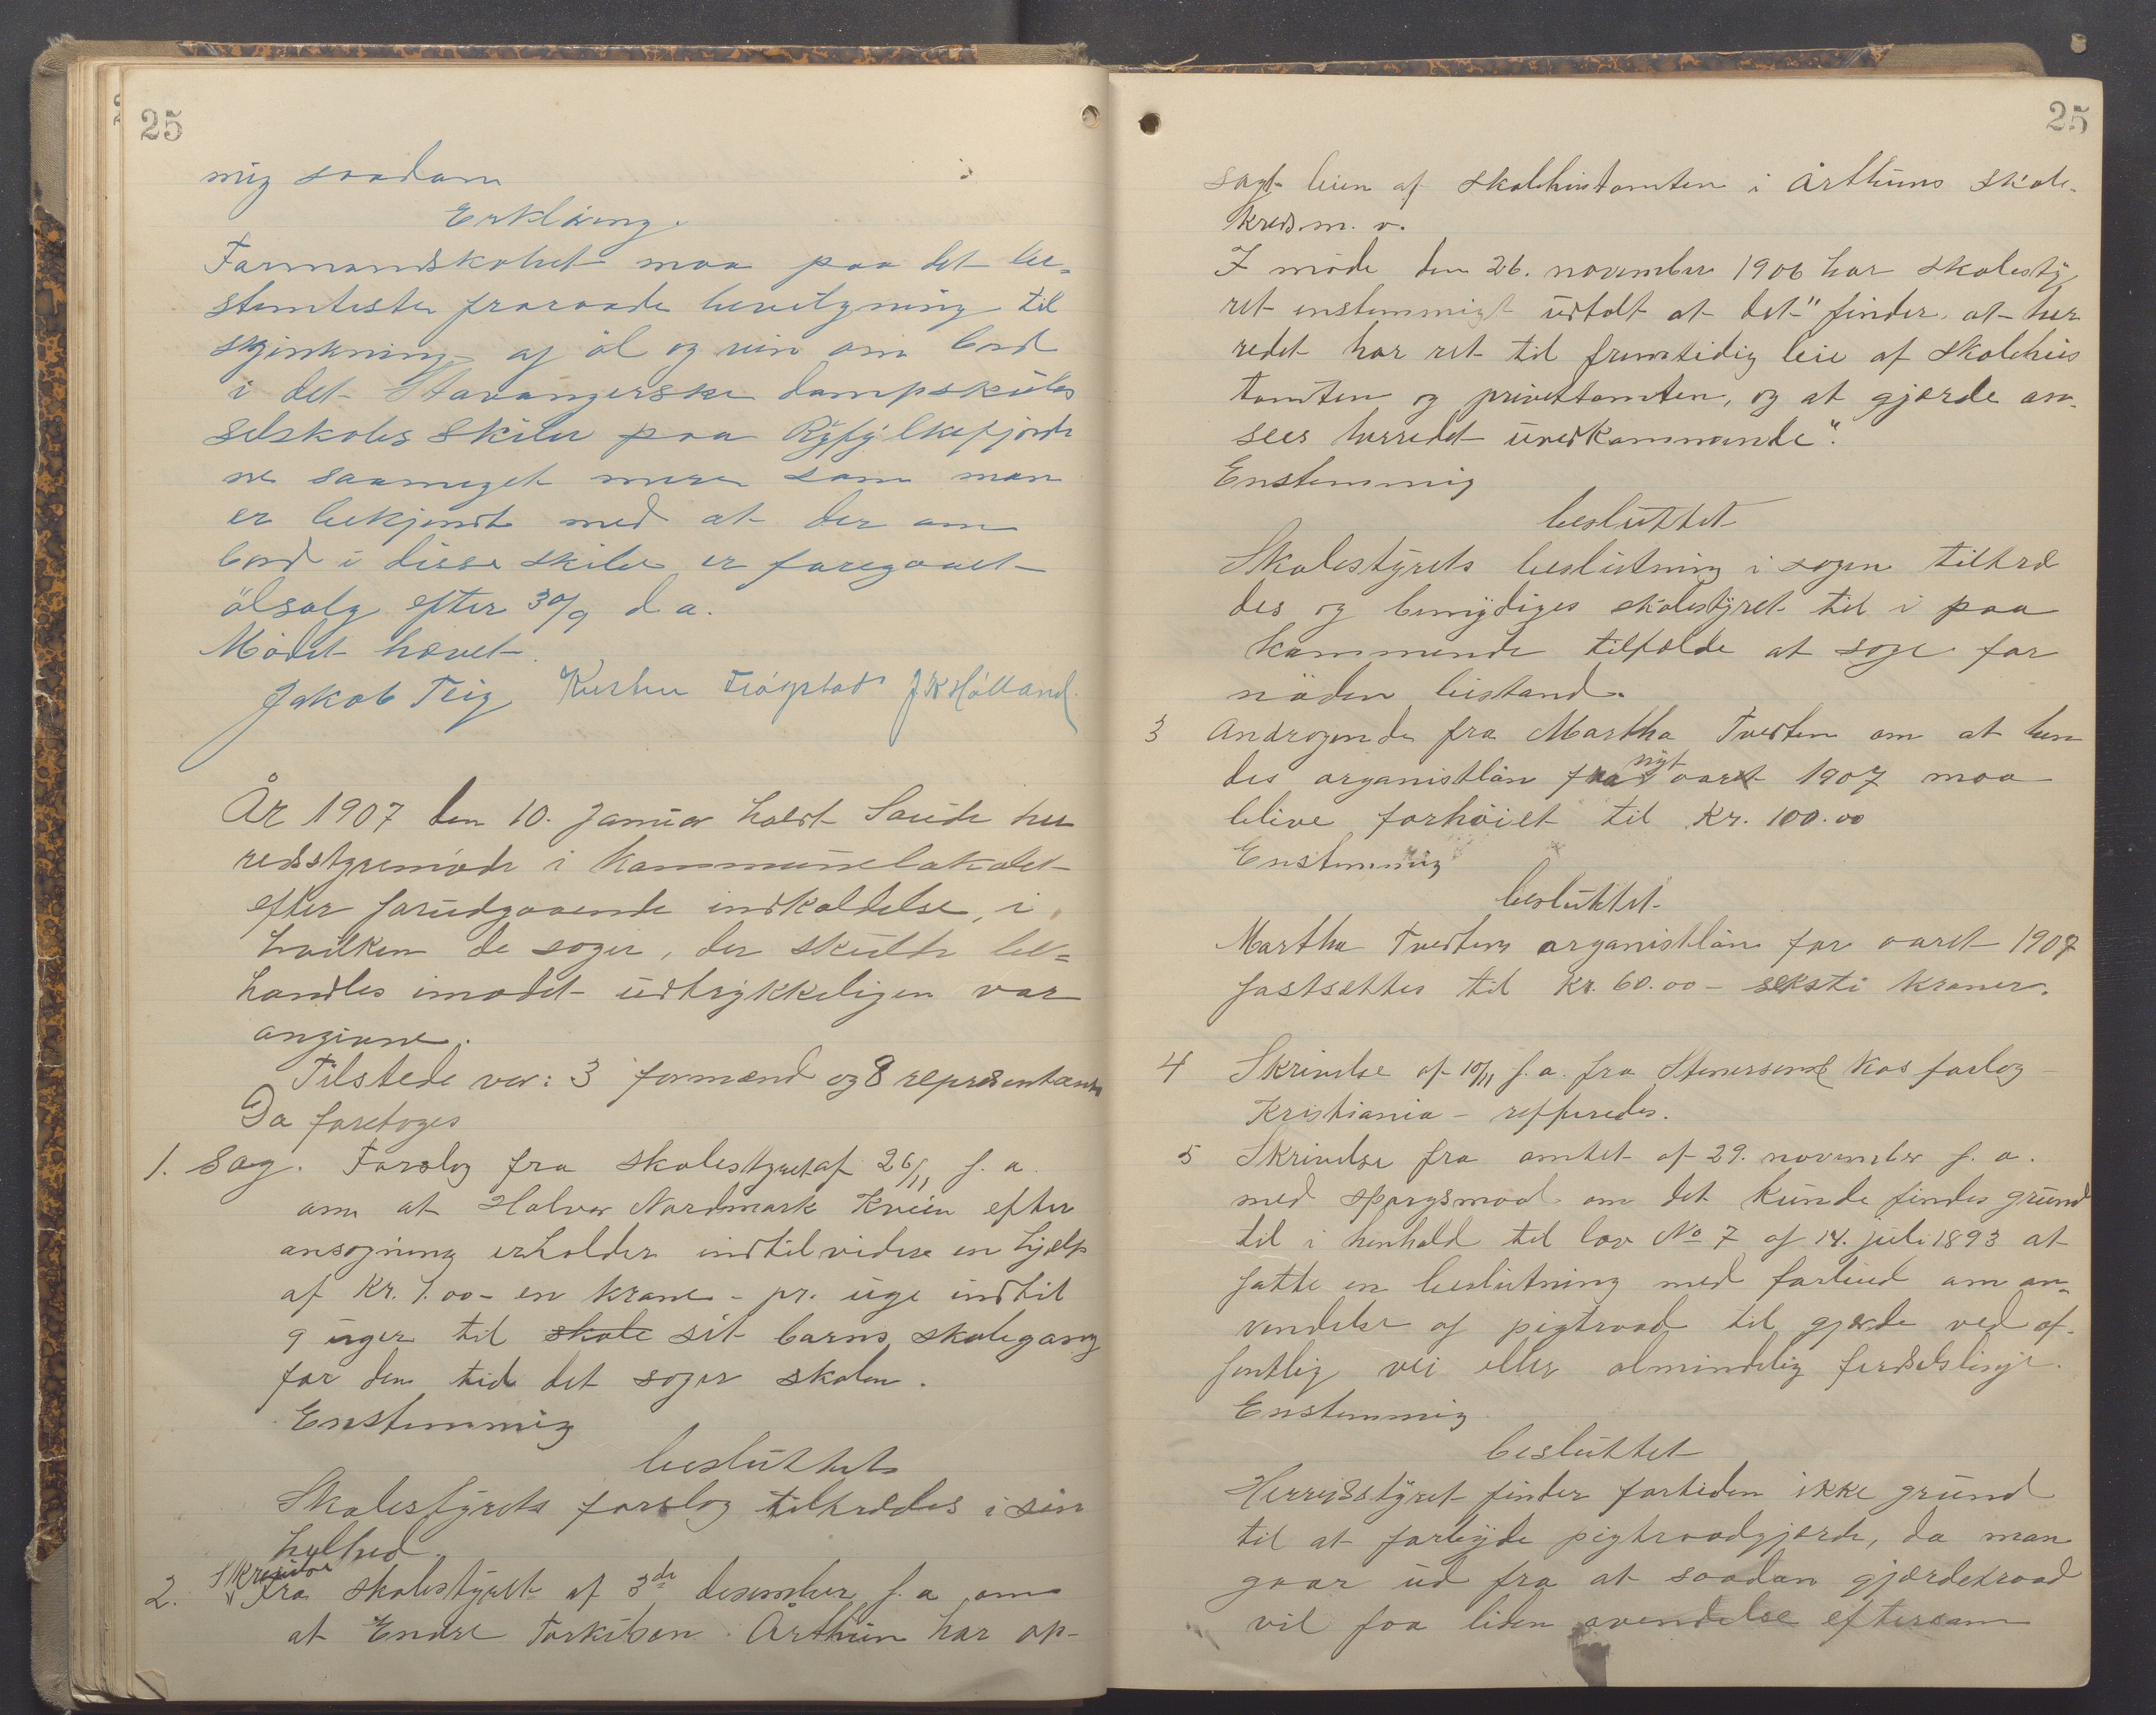 25
mig saadan
Erklæring.
Formandskabet maa paa det be-
stemteste fraraade bevilgning til
skjænkning af öl og vin om bord
i det Stavangerske dampskibs
selskabs skibe paa Ryfylkefjorde
ne saameget mere som man
er bekjendt med at der om
bord i disse skibe er foregaaet
ölsalg efter 30/9 d a.
Mödet hævet.
Jakob Teig Trögstad J K Hölland

År 1907 den 10. Januar holdt Saude her
redsstyremöde i kommunelokalet
efter forudgaaende indkaldelse, i
hvilken de sager, der skulde be-
handles i mödet udtrykkeligen var
angivne.
Tilstede var: 3 formænd og 8 repræsentanter
Da foretoges
1. Sag. Forslag fra skolestyret af 26/11 f. a.
om at Halvor Nordmark Kvien efter
ansögning erholder indtil videre en hjælp
af Kr. 1.00 - en krone - pr. uge indtil
9 uger til skole sit barns skolegang
for den tid det söger skolen.
Enstemmig
besluttet
Skolestyrets forslag tiltrædes i sin
helhed.
2. Skrivelse fra skolestyret af 3de desember f. a om
at Endre Torkelsen Årthun har op-
25
sagt leien af skolehustomten i Årthuns skole-
kreds m. v.
I möde den 26. november 1906 har skolesty
ret enstemmigt udtalt at det "finder, at her
redet har ret til fremtidig leie af skolehus
tomten og privettomten, og at gjærde an-
sees herredet uvedkommende".
Enstemmig
besluttet
Skolestyrets beslutning i sagen tiltræ
des og bemyndiges skolestyret til i paa
kommende tilfælde at söge for
nöden bistand.
3 Andragende fra Martha Tveden om at hen
des organistlön fra nyt aaret 1907 maa
blive forhöiet til Kr. 100.00
Enstemmig
besluttet
Martha Tvedens organistlön for aaret 1907
fastsættes til Kr. 60.00 - seksti kroner.

4 Skrivelse af 10/11 f. a. fra Stenersens Kos forlag -
Kristiania - refferedes.
5 Skrivelse fra amtet af 29. november f. a.
med spörgsmaal om det kunde findes grund
til i henhold til lov No 7 af 14. juli 1893 at
fatte en beslutning med forbud om an-
vendelse af pigtraad til gjærde ved of-
fentlig vei eller almindelig ferdselslinje.
Enstemmig
besluttet
Herredsstyret finder fortiden ikke grund
til at forbyde pigtraadgjærde, da man
gaar ud fra at saadan gjærdetraad
vil faa liden avendelse eftersom